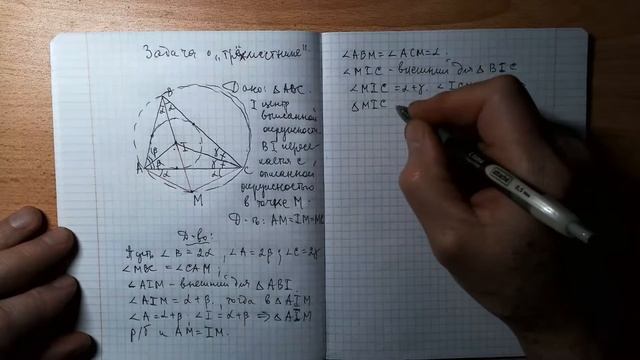 Задача о „трёхлистнике".
Дано: △ABC.
I центр
вписанной
окружности.
BI пересе-
кается с
описанной
окружностью
в точке M.
Д-ть: AM=IM=MC
B
α α
I
A β β
γ γ C
α α
M
Д-во:
∠B = 2α, ∠A = 2β; ∠C = 2γ
∠MBC = ∠CAM;
∠AIM - внешний для △ABI.
∠AIM = α+β, тогда в △AIM
∠A = α+β, ∠I = α+β ⇒ △AIM
р/б и AM = IM.
∠ABM = ∠ACM = α.
∠MIC - внешний для △BIC
∠MIC = α+γ.
△MIC
0,5 мм